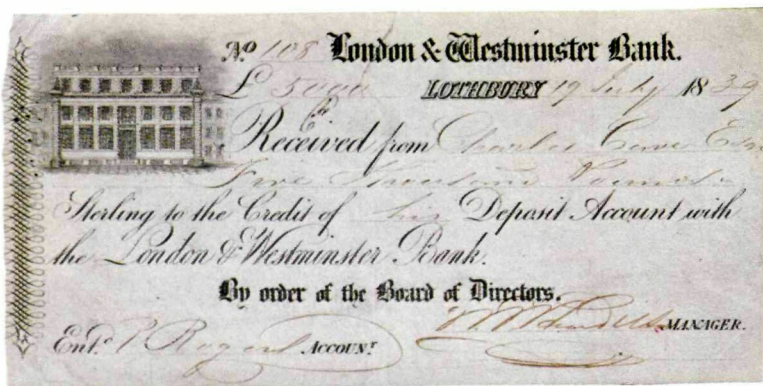 No 108 London & Westminster Bank.
£ 5000 LOTHBURY 19 July 1839
Received from Charles Cave Esqr
Five Thousand Pounds
Sterling to the Credit of his Deposit Account with
the London & Westminster Bank.
By order of the Board of Directors.
MANAGER.
Entd. P Rogers ACCOUNT